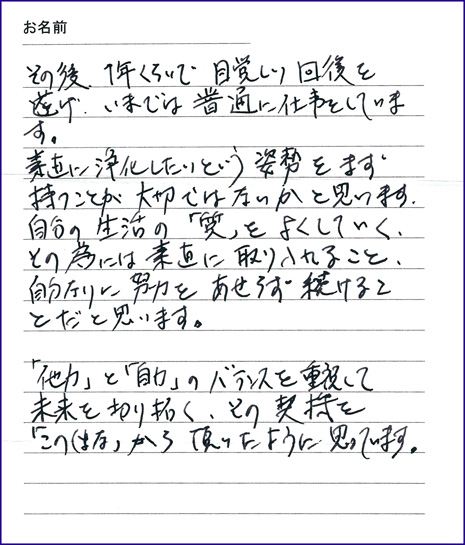 お名前
その後、1年くらいで 目覚しい 回復を
遂げ、いまでは 普通に仕事をしていま
す。
素直に浄化したいという 姿勢を まず
持つことが 大切ではないかと思います。
自分の 生活の 「質」を よくしていく、
その為には 素直に 取り入れること、
自分なりに 努力を あせらず 続けるこ
とだと思います。
「他力」と「自力」の バランスを重視して
未来を 切り拓く、その 契持を
「このはな」から 頂いたように 思っています。